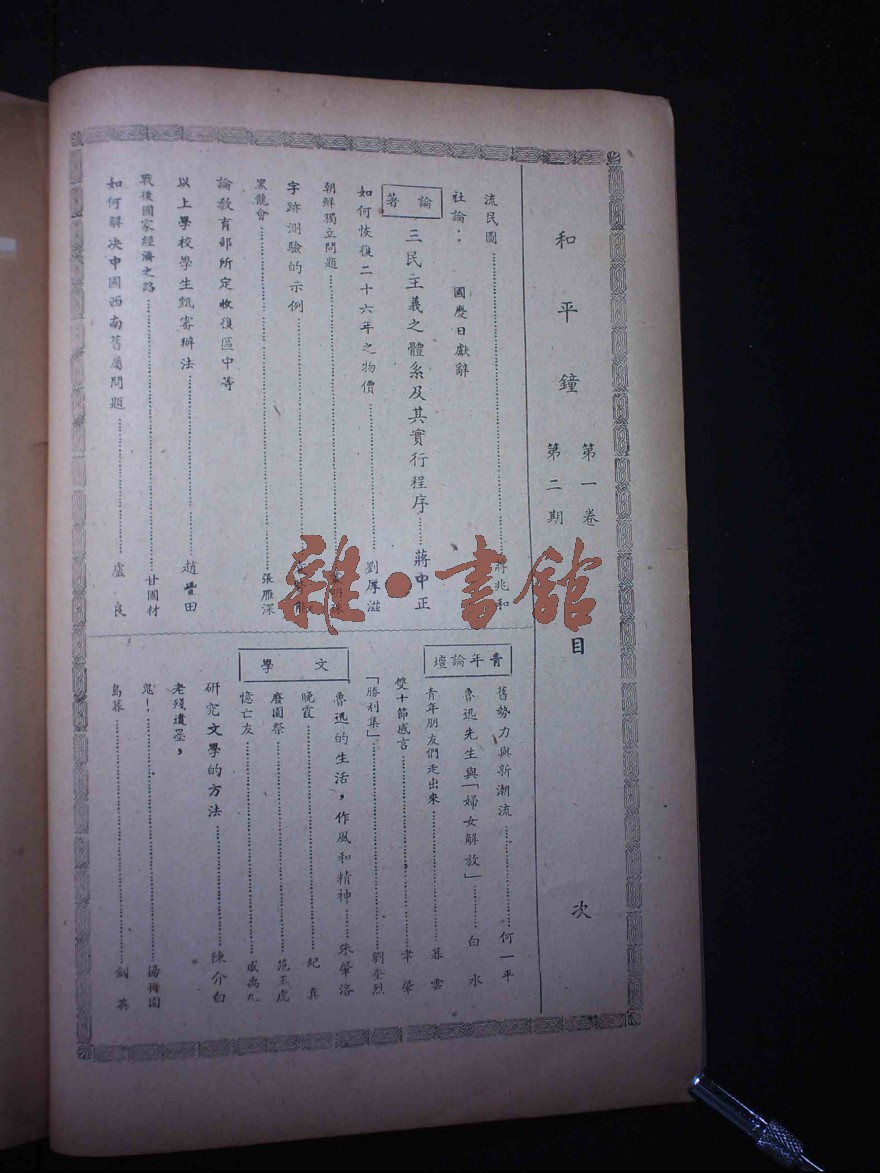 和平鐘
第一卷
第二期
目次
流民圖 蔣兆和
社論：國慶日獻辭
論著
三民主義之體系及其實行程序 蔣中正
如何恢復二十六年之物價 劉厚滋
朝鮮獨立問題
字跡測驗的示例
黑龍會 張雁深
論教育部所定收復區中等
以上學校學生甄審辦法 趙豐田
戰後國家經濟之路 甘國材
如何解决中國西南舊屬問題 盧良
青年論壇
舊勢力與新潮流 何一平
魯迅先生與「婦女解放」 白水
青年朋友們走出來 暮雲
雙十節感言 韋肇
「勝利集」 劉奎烈
文學
魯迅的生活，作風和精神 朱肇洛
晚霞 紀真
廢園祭 范玉虎
憶亡友 戚禹九
研究文學的方法 陳介白
老殘遺墨，
鬼！ 楊獨園
島暮 劍英
雜·書館